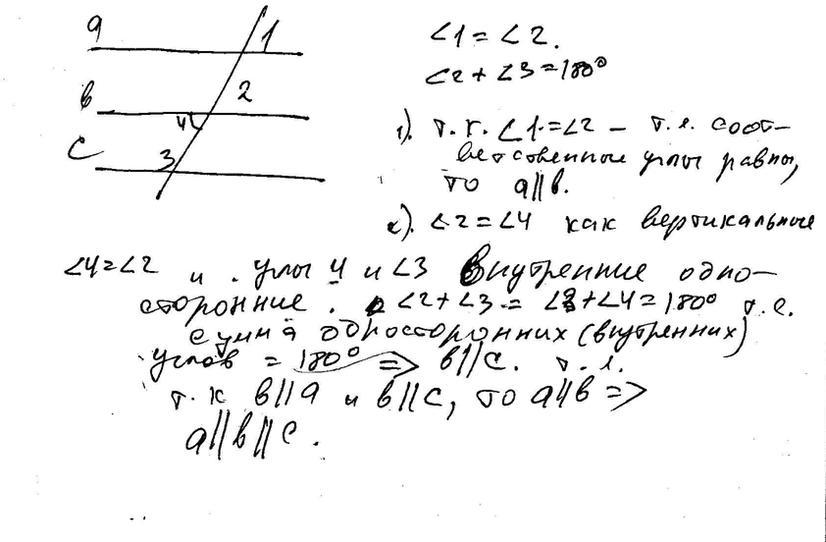 a
1
в
2
4
с
3
∠1 = ∠2.
∠2 + ∠3 = 180°
1). т.к. ∠1 = ∠2 – т.е. соот-
ветственные углы равны,
то a∥в.
2). ∠2 = ∠4 как вертикальные
∠4 = ∠2 и углы 4 и ∠3 внутренние одно-
сторонние. ∠2 + ∠3 = ∠3 + ∠4 = 180° т.е.
сумма односторонних (внутренних)
углов = 180° => в∥с. т.е.
т.к в∥a и в∥с, то a∥в =>
a∥в∥с.